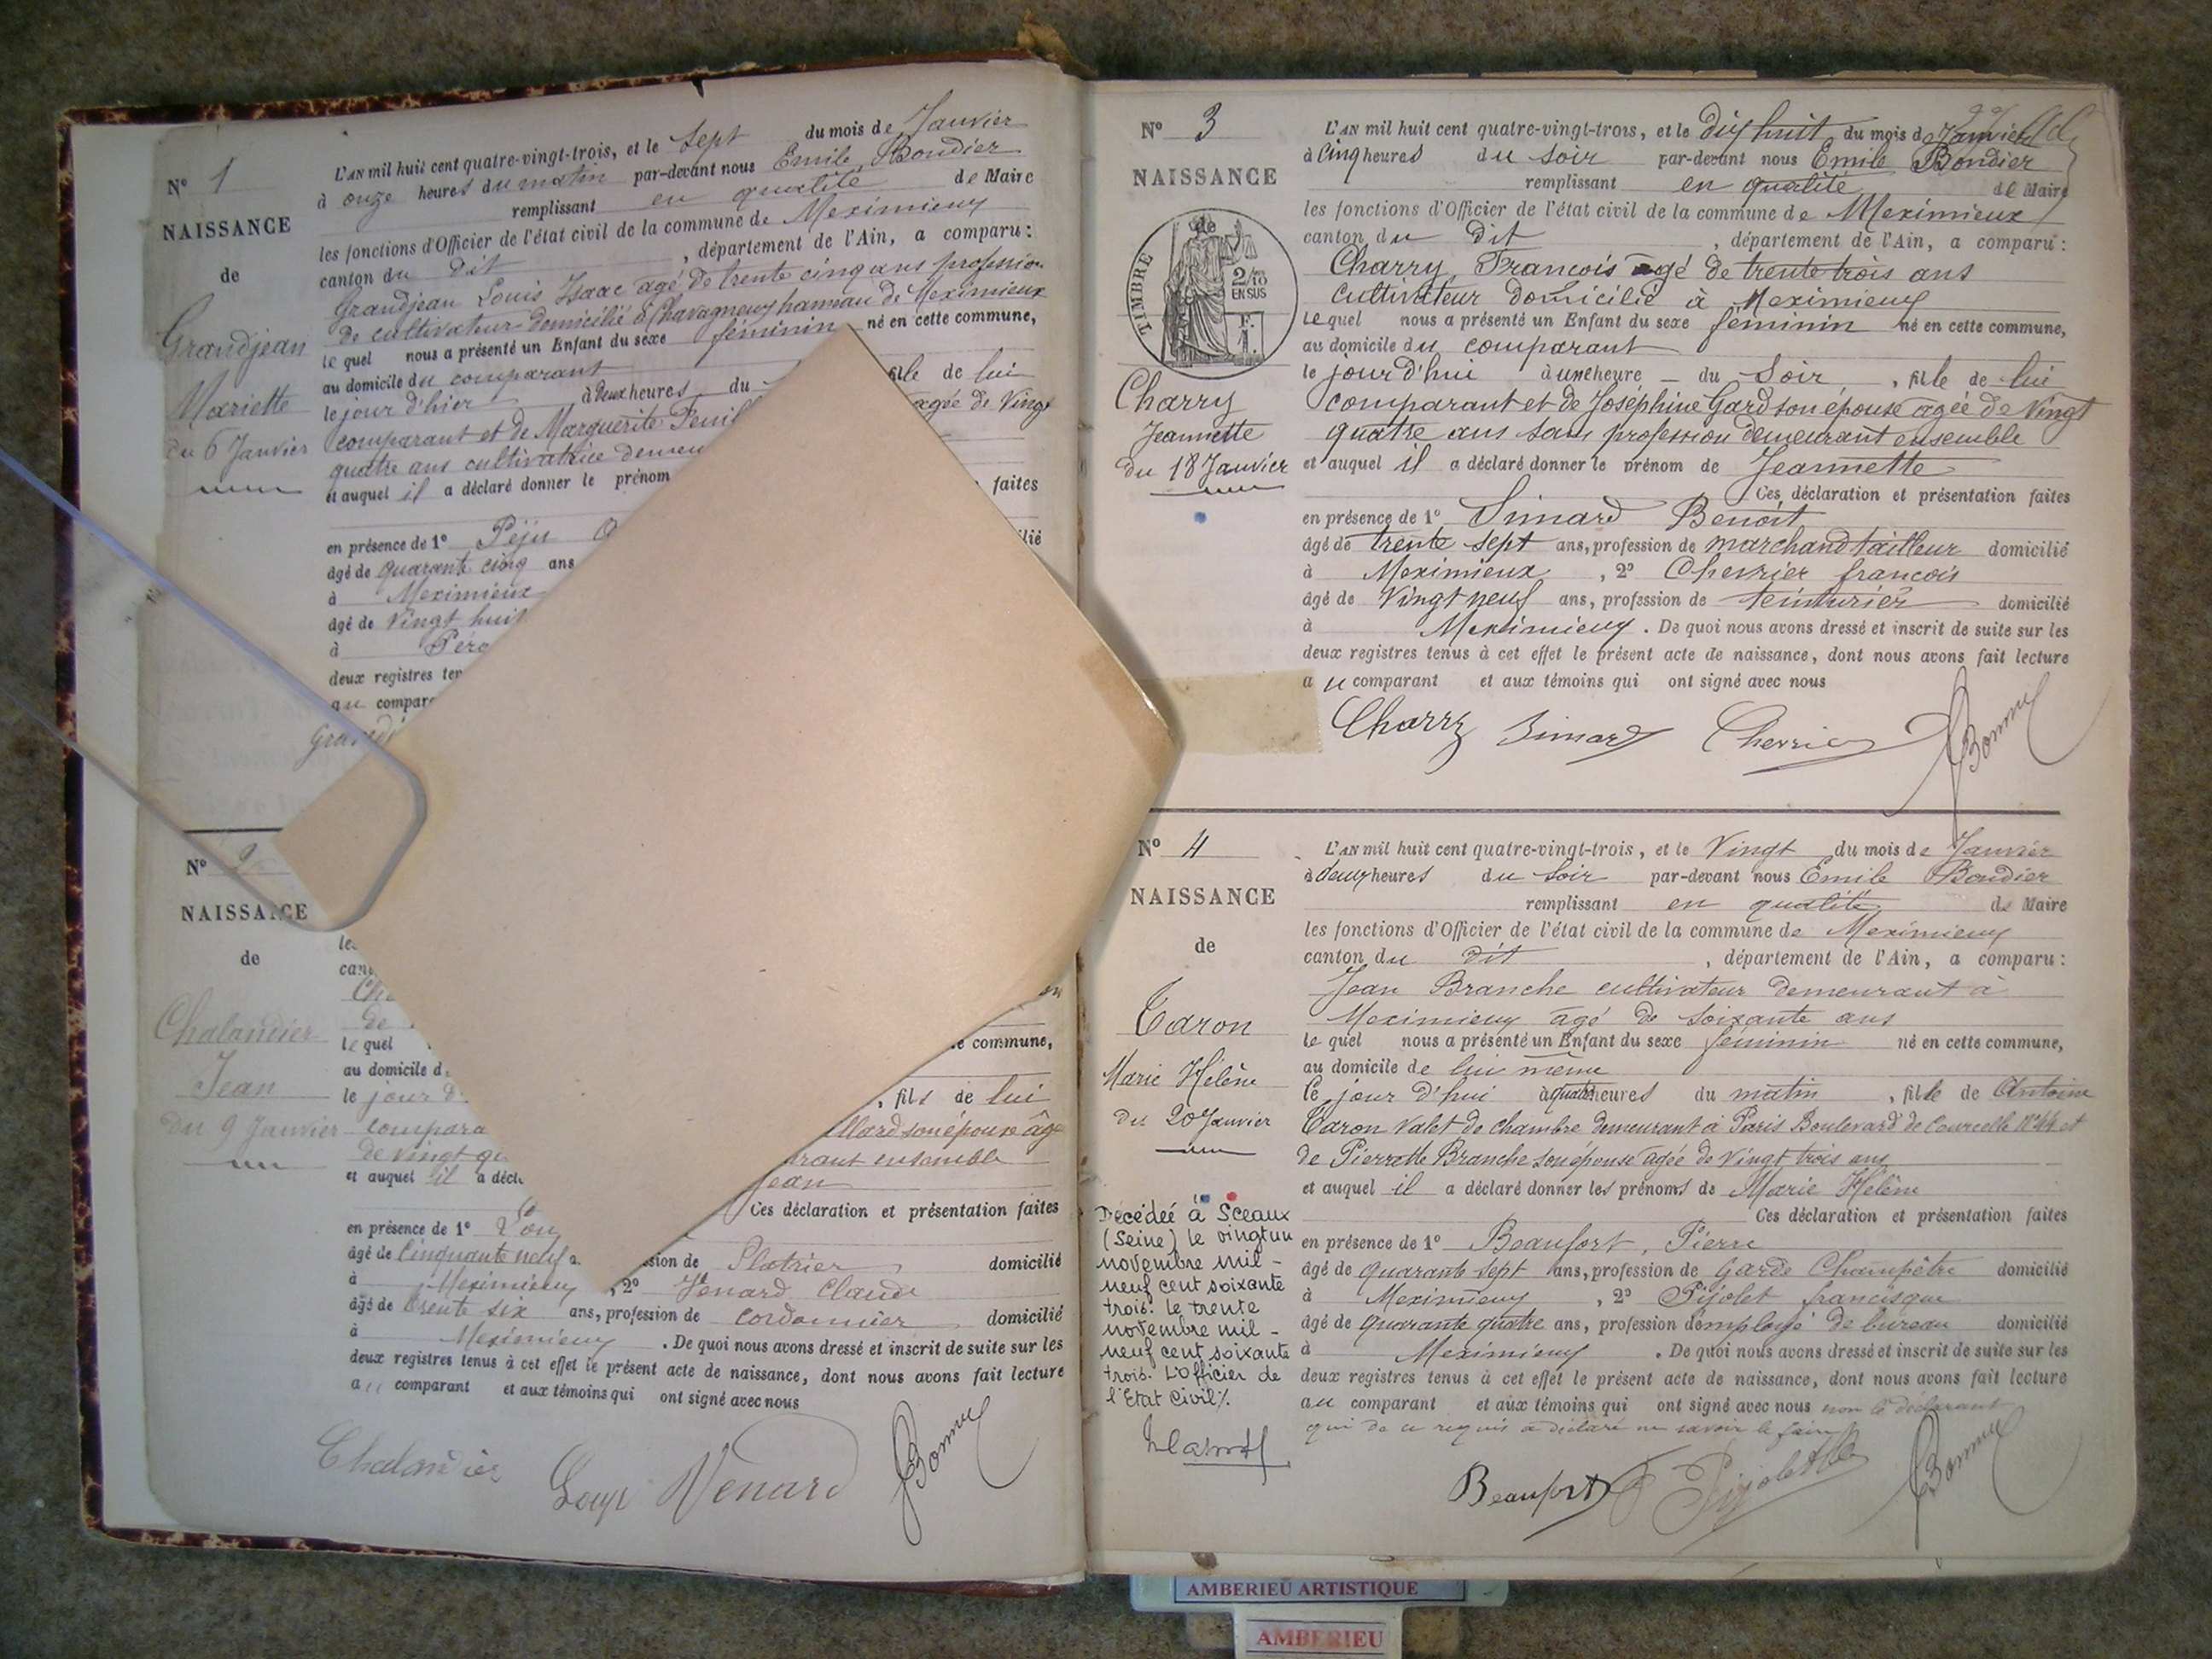 N° 1
NAISSANCE
de
Grandjean
Mariette
du 6 Janvier
L'AN mil huit cent quatre-vingt-trois, et le Sept du mois de Janvier
à onze heures du matin par-devant nous Emile
remplissant en qualité de Maire
les fonctions d'Officier de l'état civil de la commune de Meximieux
canton du dit , département de l'Ain, a comparu :
Grandjean Louis Isaac agé de trente cinq ans profession
de cultivateur domicilié à Chavagneux hameau de Meximieux
le quel nous a présenté un Enfant du sexe féminin né en cette commune,
au domicile du comparant
le jour d'hier à deux heures du
fille de lui
comparant et de Marguerite
agée de Vingt
quatre ans cultivatrice
et auquel il a déclaré donner le prénom
faites
en présence de 1° Péju
agé de quarante cinq ans
à Meximieux
âgé de Vingt huit
à
deux registres
au
N° 2
NAISSANCE
de
Chalandier
Jean
du 9 Janvier
commune,
le quel
au domicile
le jour
, fils de lui
son épouse
de vingt
ensemble
et auquel il a
Jean
Ces déclaration et présentation faites
en présence de 1°
âgé de Cinquante neuf
de Platrier domicilié
à Meximieux , 2° Venard Claude
âgé de trente six ans, profession de cordonnier domicilié
à Meximieux . De quoi nous avons dressé et inscrit de suite sur les
deux registres tenus à cet effet le présent acte de naissance, dont nous avons fait lecture
au comparant et aux témoins qui ont signé avec nous
Chalandier Loup Venard
N° 3
NAISSANCE
de
TIMBRE
2/10
EN SUS
Charry
Jeannette
du 18 Janvier
L'AN mil huit cent quatre-vingt-trois, et le dix huit du mois de Janvier
à Cinq heures du soir par-devant nous Emile
remplissant en qualité de Maire
les fonctions d'Officier de l'état civil de la commune de Meximieux
canton du dit , département de l'Ain, a comparu :
Charry, François agé de trente trois ans
cultivateur domicilié à Meximieux
le quel nous a présenté un Enfant du sexe féminin né en cette commune,
au domicile du comparant
le jour d'hui à une heure du Soir, fille de lui
comparant et de Joséphine Gard son épouse agée de Vingt
quatre ans sans profession demeurant ensemble
et auquel il a déclaré donner le prénom de Jeannette
Ces déclaration et présentation faites
en présence de 1° Simard Benoit
âgé de trente sept ans, profession de marchand tailleur domicilié
à Meximieux , 2° Cherrier françois
âgé de Vingt neuf ans, profession de teinturier domicilié
à Meximieux . De quoi nous avons dressé et inscrit de suite sur les
deux registres tenus à cet effet le présent acte de naissance, dont nous avons fait lecture
au comparant et aux témoins qui ont signé avec nous
Charry Simard Cherrier
N° 4
NAISSANCE
de
Caron
Marie Hélène
du 20 Janvier
L'AN mil huit cent quatre-vingt-trois, et le Vingt du mois de Janvier
à deux heures du soir par-devant nous Emile
remplissant en qualité de Maire
les fonctions d'Officier de l'état civil de la commune de Meximieux
canton du dit , département de l'Ain, a comparu :
Jean Branche cultivateur demeurant à
Meximieux agé de soixante ans
le quel nous a présenté un Enfant du sexe féminin né en cette commune,
au domicile de lui même
le jour d'hui à quatre heures du matin , fille de Antoine
Caron Valet de chambre demeurant à Paris Boulevard de Courcelle N° 44 et
de Pierrette Branche son épouse agée de Vingt trois ans
et auquel il a déclaré donner les prénoms de Marie Hélène
Ces déclaration et présentation faites
en présence de 1° Beaufort, Pierre
âgé de quarante sept ans, profession de Garde Champêtre domicilié
à Meximieux , 2° Pijolet francisque
âgé de quarante quatre ans, profession d'employé de bureau domicilié
à Meximieux . De quoi nous avons dressé et inscrit de suite sur les
deux registres tenus à cet effet le présent acte de naissance, dont nous avons fait lecture
au comparant et aux témoins qui ont signé avec nous non le déclarant
qui de ce requis a déclaré ne savoir le faire
Beaufort
Décédée à Sceaux
(Seine) le vingt un
novembre mil -
neuf cent soixante
trois. Le trente
novembre mil -
neuf cent soixante
trois. L'Officier de
l'Etat Civil %.
AMBERIEU ARTISTIQUE
AMBERIEU